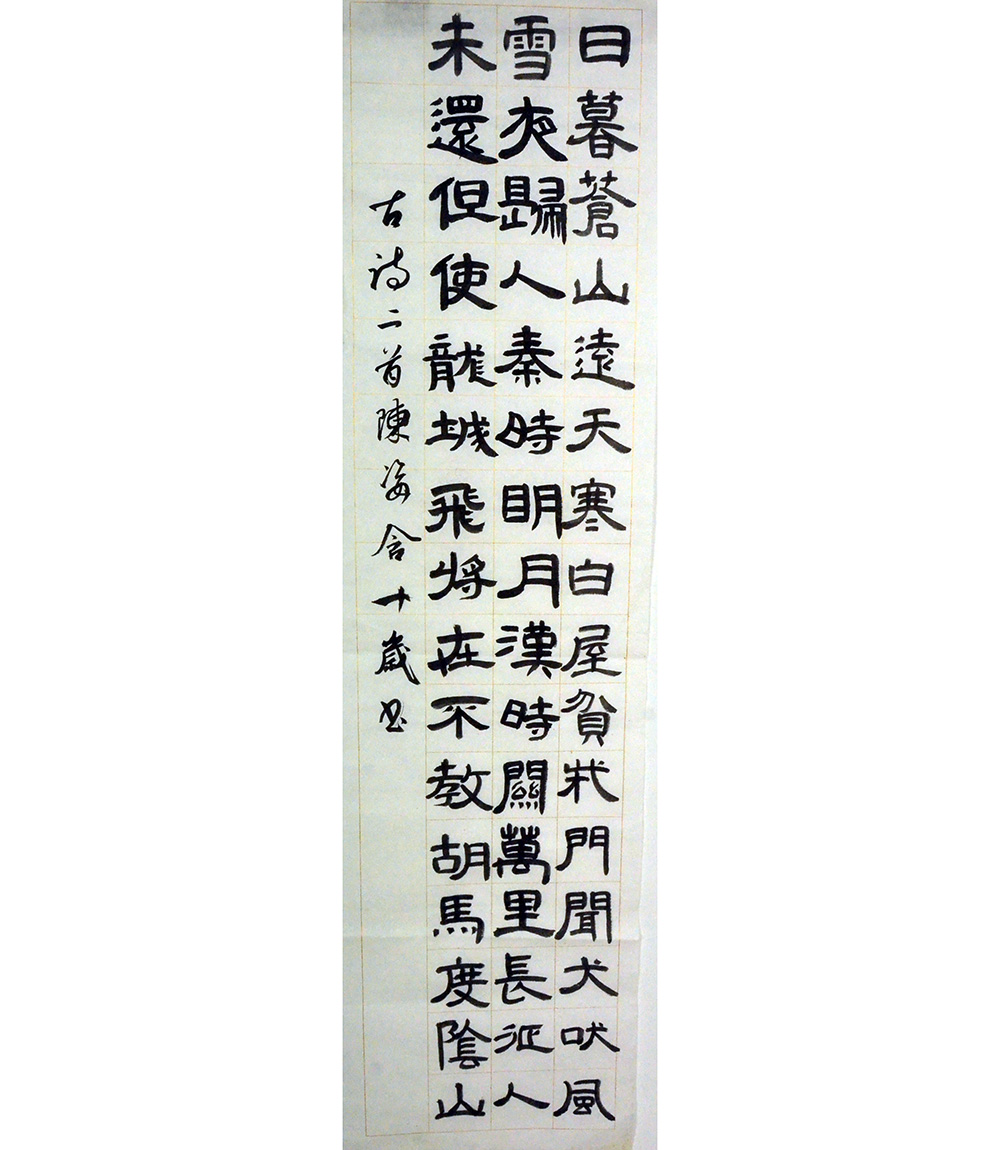 日暮蒼山遠天寒白屋貧柴門聞犬吠風
雪夜歸人秦時明月漢時關萬里長征人
未還但使龍城飛將在不教胡馬度陰山
古詩二首陳姿含十歲書